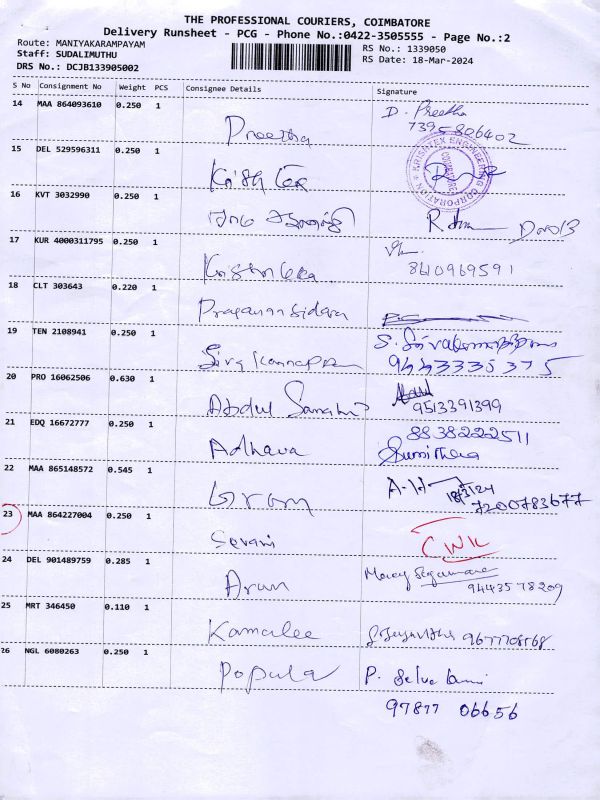 THE PROFESSIONAL COURIERS, COIMBATORE
Delivery Runsheet - PCG - Phone No.:0422-3505555 - Page No.:2
Route: MANIYAKARAMPAYAM
RS No.: 1339050
Staff: SUDALIMUTHU
RS Date: 18-Mar-2024
DRS No.: DCJB133905002
S No Consignment No Weight PCS Consignee Details Signature
14 MAA 864093610 0.250 1 Preetha D. Preetha
7395806402
15 DEL 529596311 0.250 1
KRISHTEX ENGINEERING CORPORATION
COIMBATORE
16 KVT 3032990 0.250 1
17 KUR 4000311795 0.250 1
8610969591
18 CLT 303643 0.220 1
19 TEN 2108941 0.250 1 Siva Kannappan
9443335375
20 PRO 16062506 0.630 1 Abdul
9513391399
21 EDQ 16672777 0.250 1 Adhava 8838222511
Sumithra
22 MAA 865148572 0.545 1 18/3/24
7200783677
23 MAA 864227004 0.250 1
24 DEL 901489759 0.285 1 Arun
9443578209
25 MRT 346450 0.110 1 Kamalee
26 NGL 6080263 0.250 1 Popula
97877 06656